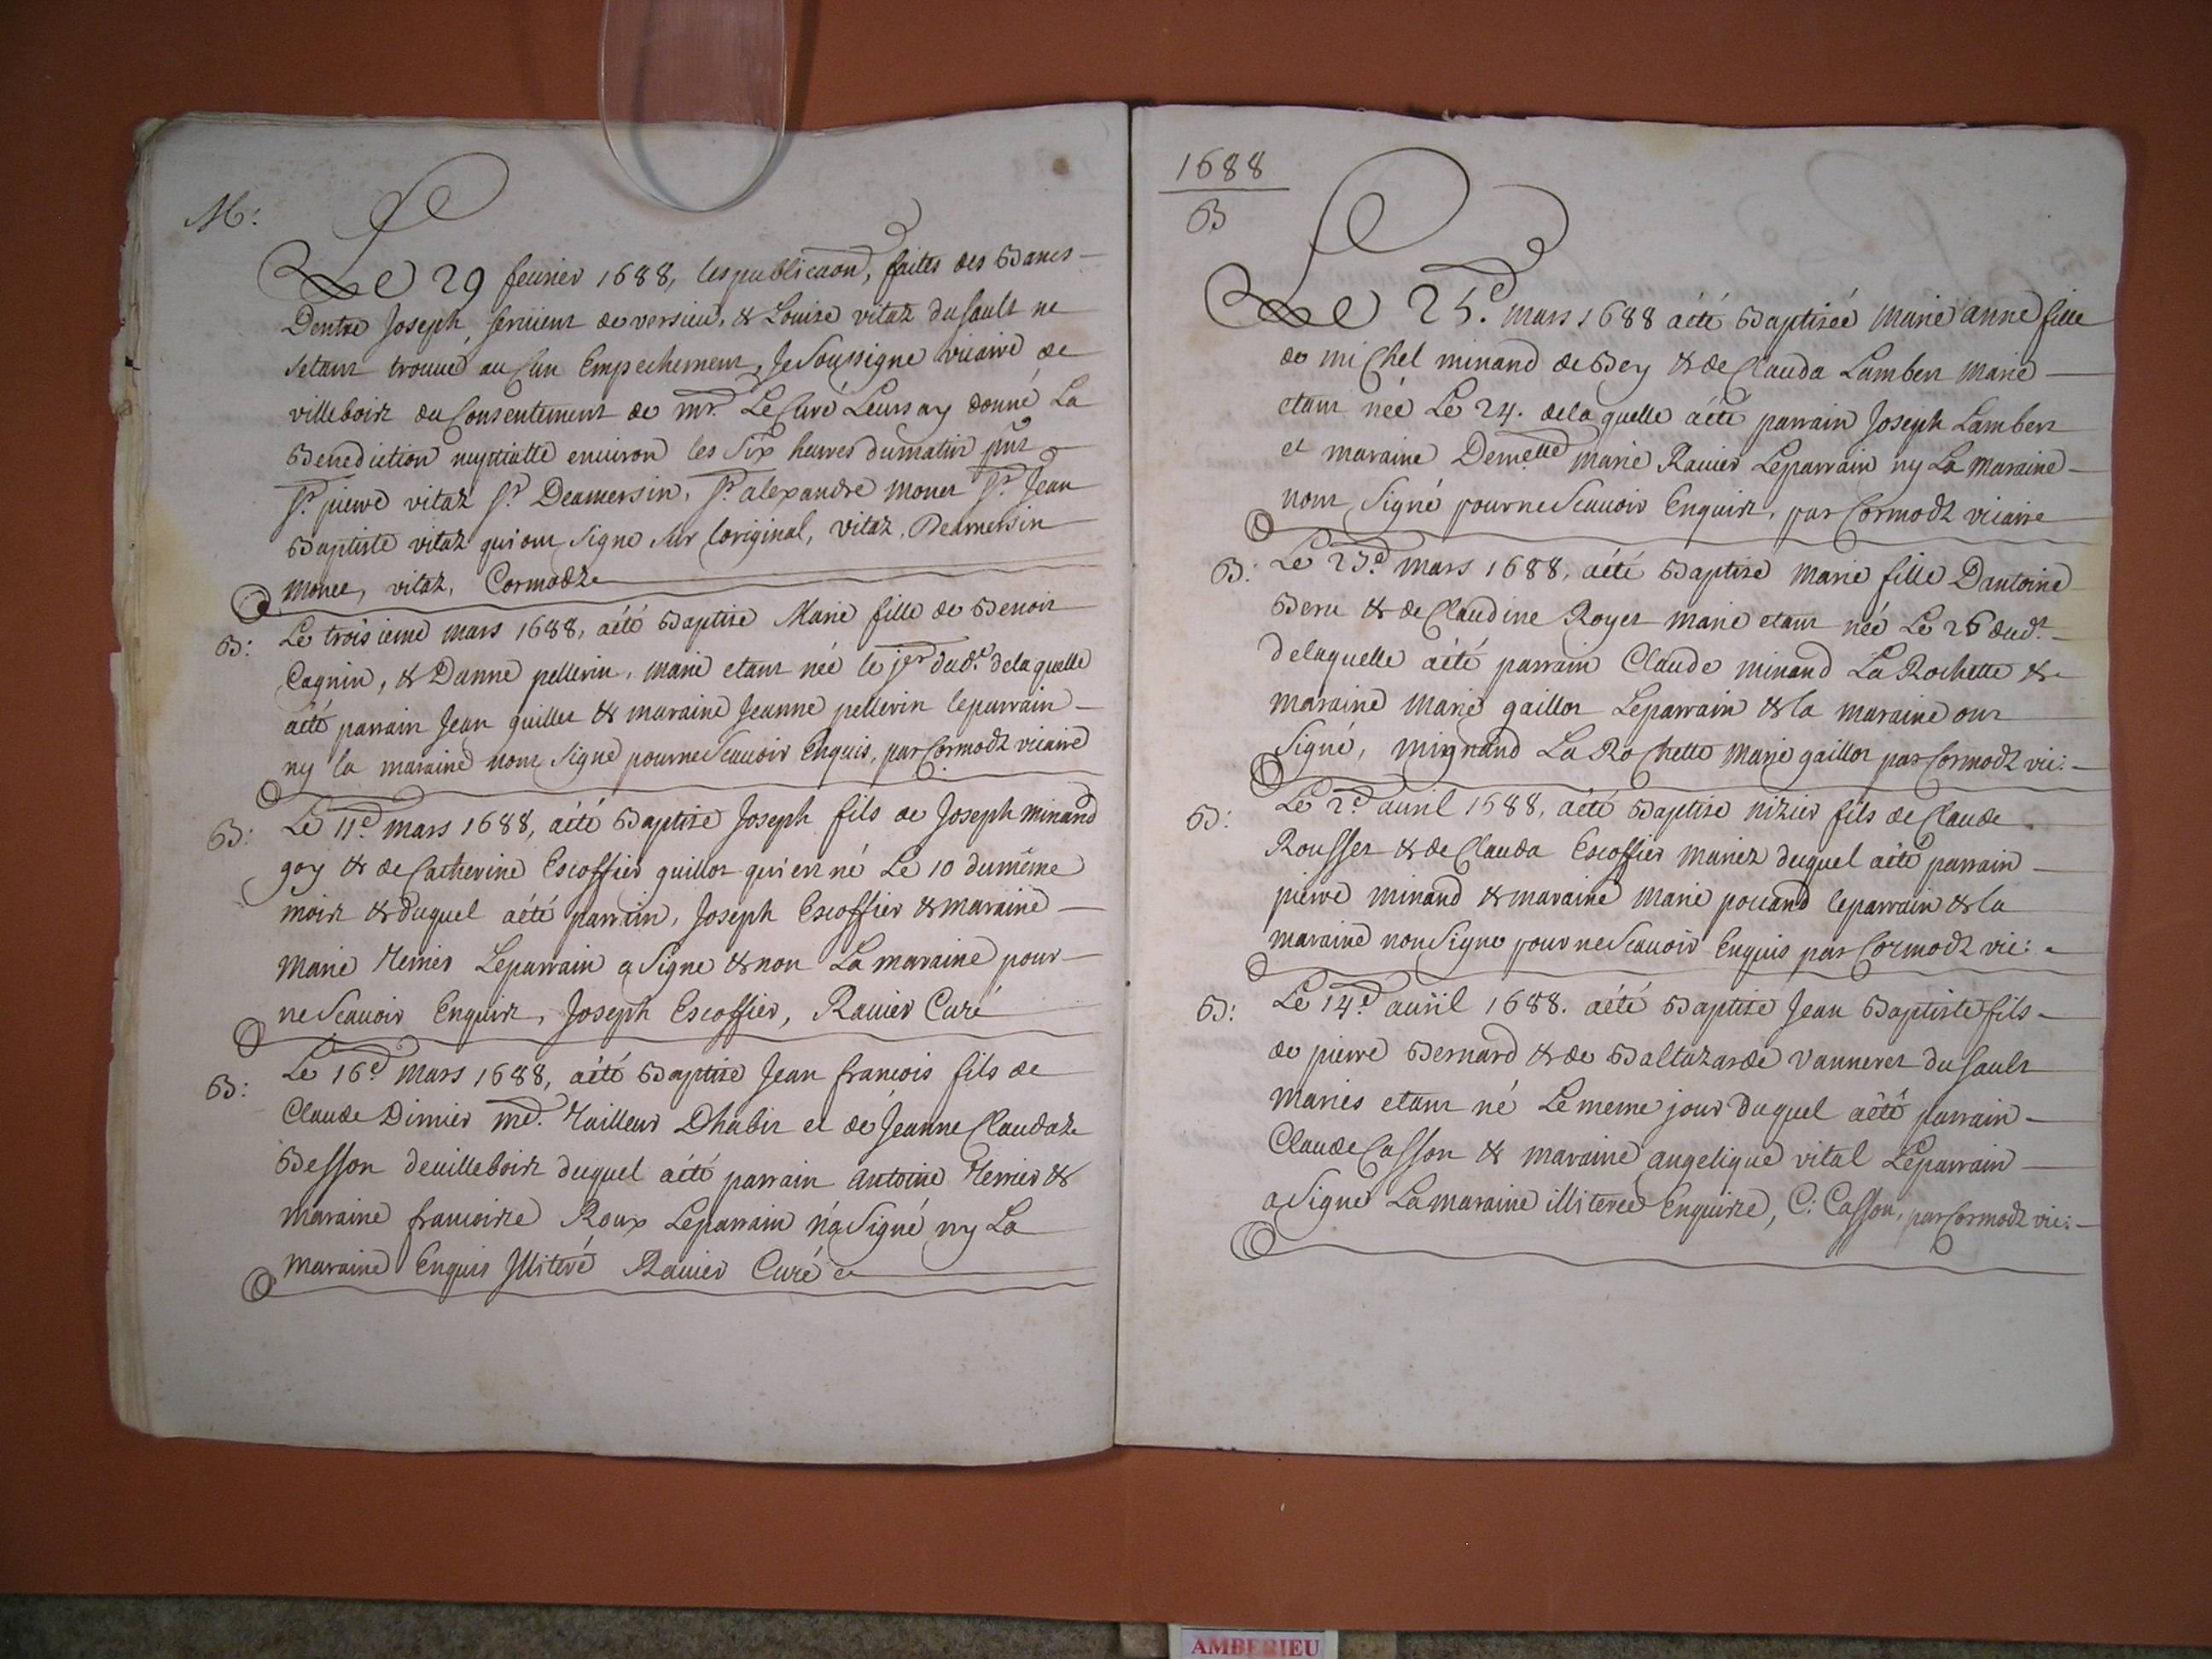 M:
Le 29 feurier 1688, les publicaon, faites des Bancs
Dentre Joseph, seruient de versieu, & Louise vitaz du sault ne
setant trouué au Cun Empechement, Je Soussigne vicaire de
villebois du Consentement de mr. Le Curé Leurs ay donné La
Benediction nuptialle enuiron les Six heures du matin pnt
Sr. pierre vitaz Sr. Deamersin, Sr. alexandre monet Sr. Jean
Baptiste vitaz qui ont Signe Sur loriginal, vitaz, Deamersin
monet, vitaz, Cormodz
B: Le troisieme mars 1688, aété Baptise Marie fille de Benoit
Cagnin, & Danne pellerin, marié etant née le jer dud. delaquelle
aété parrain Jean guillet & maraine Jeanne pellerin leparrain
ny la maraine nont Signé pourneScauoir Enquis, par Cormodz vicaire
B: Le 11e mars 1688, aété Baptise Joseph fils de Joseph minand
goy & de Catherine Escoffier guillot qui en né Le 10 dumême
mois & duquel aété parrain, Joseph Escoffier & maraine
Marie Terrier Leparrain a Signe & non La maraine pour
neScauoir Enquise, Joseph Escoffier, Rauier Curé
B: Le 16e mars 1688, aété Baptise Jean francois fils de
Claude Dimier md. Tailleur Dhabit et de Jeanne Claudaz
Besson deuillebois duquel aété parrain antoine Terrier &
maraine francoise Roux Leparrain n'a Signé ny La
maraine Enquis Illiteré Rauier Curé
1688
B
Le 25e. mars 1688 aété Baptisée Marie anne fille
de miChel minand de Bey & de Clauda Lambert Marié
etant née Le 24. dela quelle aété parrain Joseph Lambert
et maraine Demelle Marie Rauier Leparrain ny La maraine
nont Signé pourneScauoir Enquis, par Cormodz vicaire
B: Le 27e mars 1688, aété Baptisé Marie fille Dantoine
Beru & de Claudine Royer marié etant née Le 26 dudt
delaquelle aété parrain Claude minand La Rochette &
maraine Marie gaillot Leparrain & la maraine ont
Signé, mignand La RoChette Marie gaillot par Cormodz vic:
B: Le 2e auril 1688, aété Baptise nizier fils de Claude
Rousset & de Clauda Escoffier mariez duquel aété parrain
pierre minand & maraine Marie pouand leparrain & la
maraine nonSigne pour neScauoir Enquis par Cormodz vic:
B: Le 14e auril 1688. aété Baptise Jean Baptiste fils
de pierre Bernard & de Baltazarde Vanneret du sault
Mariés etant né Lememe jour duquel aété parrain
Claude Casson & maraine angelique vital Leparrain
a Signé La maraine illiteree Enquise, C: Casson, par Cormodz vic:
AMBERIEU